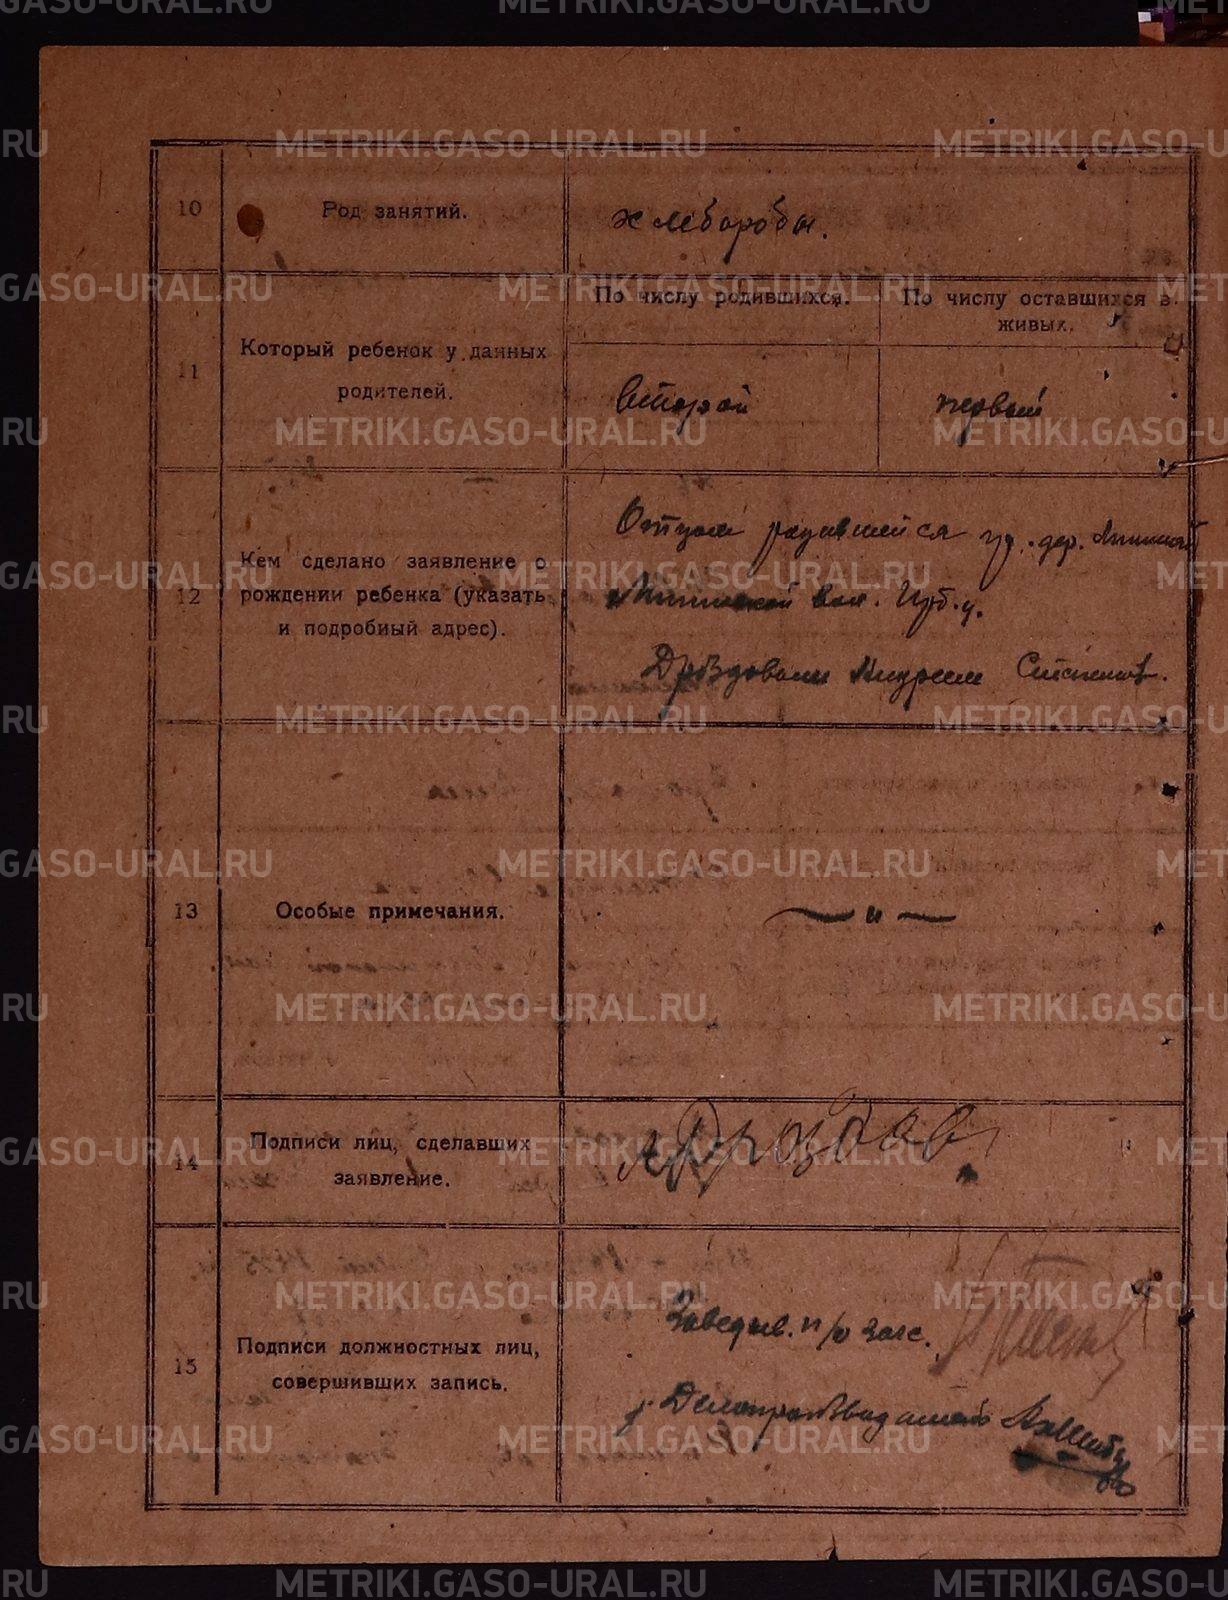 METRIKI.GASO-URAL.RU
10
Род занятий.
хлеборобы.
11
Который ребенок у данных
родителей.
По числу родившихся.
По числу оставшихся в
живых.
второй
первый
12
Кем сделано заявление о
рождении ребенка (указать
и подробный адрес).
Отцом родившейся гр. дер.
вол. Ирб. у.
Дроздовым Андреем Степанов.
13
Особые примечания.
— " —
14
Подписи лиц, сделавших
заявление.
АДроздов
15
Подписи должностных лиц,
совершивших запись.
Заведыв. п/о загс.
Делопроизводитель